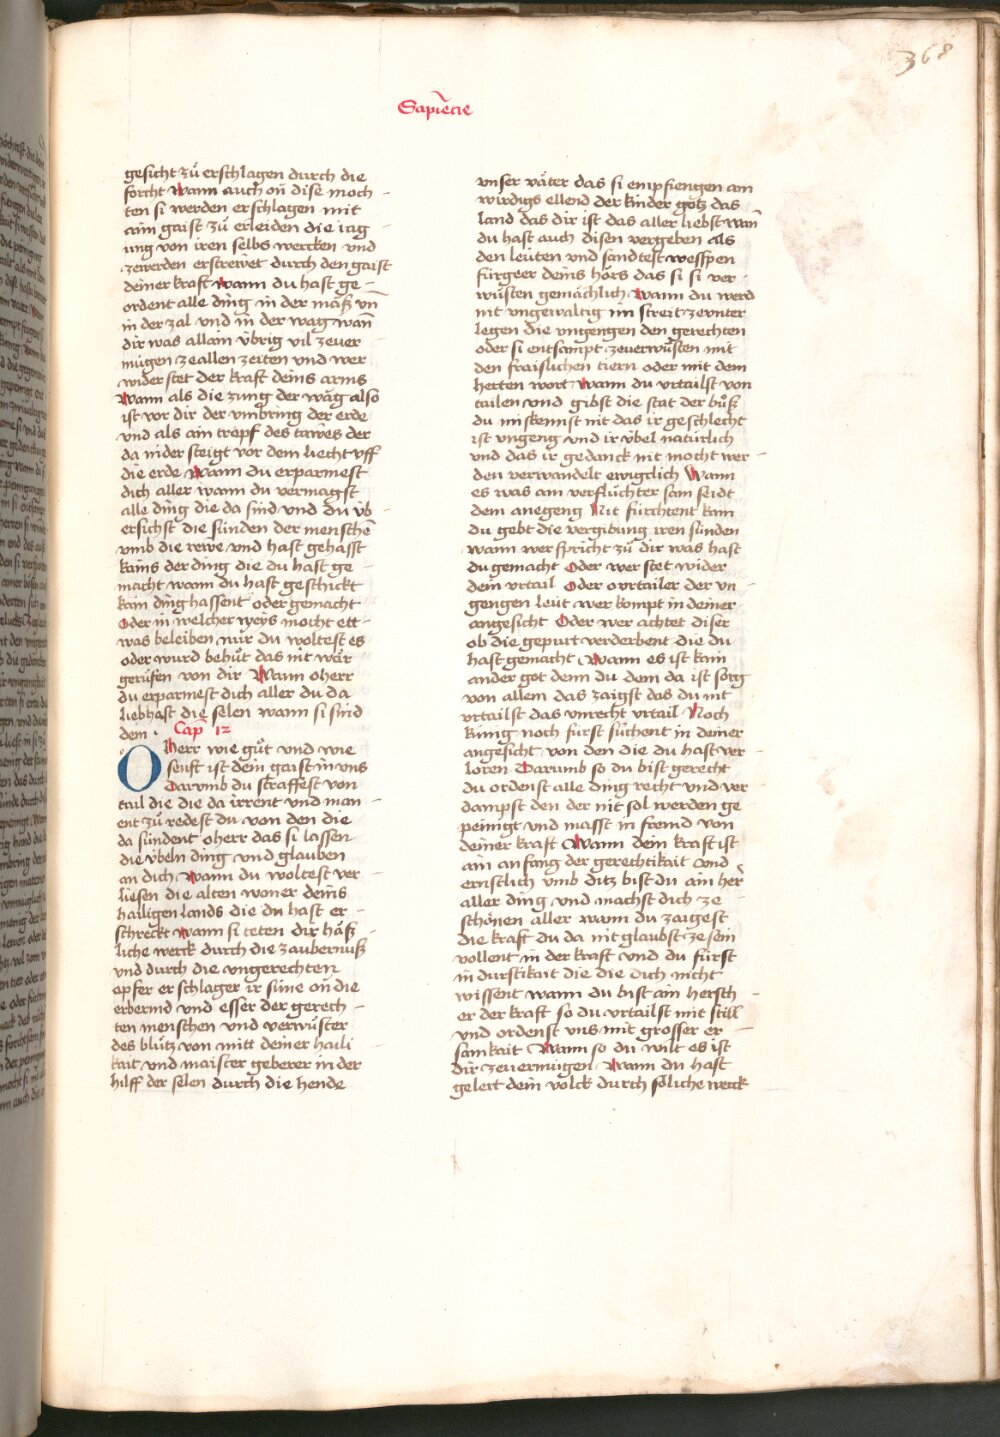 368
Sapiēcie
gesicht zů erschlagen durch die
forcht wann auch on dise moch
ten si werden erschlagen mit
aim gaist zů erleiden die iag
ung von iren selbs wercken vnd
zewerden erstrewet durch den gaist
deiner kraft wann du hast ge
ordent alle ding in der mäß vn̄
in der zal vnd in der wag wan̄
dir was allain v̈brig vil zever
mügen ze allen zeiten vnd wer
wider stet der kraft deins arms
wann als die zung der wäg also
ist vor dir der vmbring der erde
vnd als ain tropf des tawes der
da nider steigt vor dem liecht vff
die erde wann du erparmest
dich aller wann du vermagst
alle ding die da sind vnd du v̈b
ersichst die sünden der menschē
vmb die rewe vnd hast gehasst
kains der ding die du hast ge
macht wann du hast geschickt
kain ding hassent oder gemacht
oder in welcher weys mocht ett
was beleiben nur du woltest es
oder wurd behůt das nit wär
gerůfen von dir Wann o herr
du erparmest dich aller du da
liebhast die selen wann si sind
dein · Cap 12
O herr wie gůt vnd wie
senft ist dein gaist in vns
Darumb du straffest von
tail die die da irrent vnd man
ent zů redest du von den die
da sündent o herr das si lassen
die v̈beln ding vnd glauben
an dich wann du woltest ver
liesen die alten woner deins
hailigen lands die du hast er
schreckt wann si teten dir häß
liche werck durch die zaubernuß
vnd durch die vngerechten
opfer er schlager ir süne on die
erbermd vnd esser der gerech
ten menschen vnd verwüster
des blůtz von mitt deiner haili
kait vnd maister geberer in der
hilff der selen durch die hende
vnser väter das si empfiengen ain
wirdigs ellend der kinder gotz das
land das dir ist das aller liebst wan̄
du hast auch disen vergeben als
den leüten vnd sandtest wesspen
fürgeer deins hörs das si si ver
wüsten gemächlich wann du werd
nit vngewaltig im streit ze vnter
legen die vngengen den gerechten
oder si entsampt zeuerwüsten mit
den fraislichen tiern oder mit dem
herten wort wann du vrtailst von
tailen vnd gibst die stat der bůß
du miskennst nit das ir geschlecht
ist vngeng vnd ir v̈bel natürlich
vnd das ir gedanck nit mocht wer
den verwandelt ewigclich Wann
es was ain verflůchter sam seidt
dem anegeng Nit fürchtent kain
du gebt die vergibung iren sünden
wann wer spricht zů dir was hast
du gemacht Oder wer stet wider
dein vrtail Oder o vrtailer der vn
gengen leüt wer kompt in deiner
angesicht Oder wer achtet diser
ob die gepurt verderbent die du
hast gemacht Wann es ist kain
ander got denn du dem da ist sorg
von allem das zaigst das du nit
vrtailst das vnrecht vrtail Noch
kung noch fürst sůchent in deiner
angesicht von den die du hast ver
loren Darumb so du bist gerecht
du ordenst alle ding recht vnd ver
dampst den der nit sol werden ge
peinigt vnd masst in fremd von
deiner kraft Wann dein kraft ist
ain anfang der gerechtikait vnd
ernstlich vmb ditz bist du ain her̄
aller ding vnd machst dich ze
schonen aller wann du zaigest
die kraft du da nit glaubst ze sein
vollent in der kraft vnd du fürst
in durstikait die die dich nicht
wissent wann du bist ain hersch
er der kraft so du vrtailst mit still
vnd ordenst vns mit grosser er
samkait Wann so du wilt es ist
dir zeuermügen Wann du hast
gelert dein volck durch söliche werck